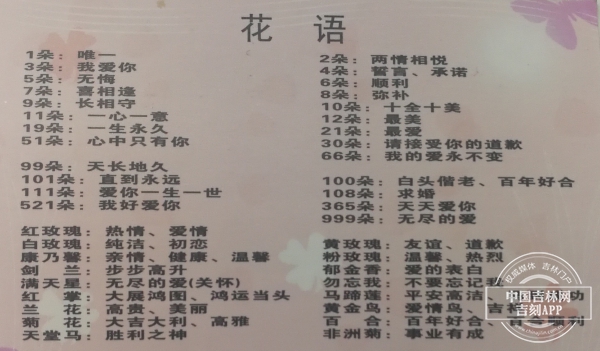 花 语
1朵：唯一
3朵：我爱你
5朵：无悔
7朵：喜相逢
9朵：长相守
11朵：一心一意
19朵：一生永久
51朵：心中只有你
99朵：天长地久
101朵：直到永远
111朵：爱你一生一世
521朵：我好爱你
2朵：两情相悦
4朵：誓言、承诺
6朵：顺利
8朵：弥补
10朵：十全十美
12朵：最美
21朵：最爱
30朵：请接受你的道歉
66朵：我的爱永不变
100朵：白头偕老、百年好合
108朵：求婚
365朵：天天爱你
999朵：无尽的爱
红玫瑰：热情、爱情
白玫瑰：纯洁、初恋
康乃馨：亲情、健康、温馨
剑 兰：步步高升
满天星：无尽的爱(关怀)
红 掌：大展鸿图、鸿运当头
兰 花：高贵、美丽
菊 花：大吉大利、高雅
天堂马：胜利之神
黄玫瑰：友谊、道歉
粉玫瑰：温馨、热烈
郁金香：爱的表白
勿忘我：不要忘记我
马蹄莲：平安高洁、功
黄金鸟：爱情鸟、吉祥
百 合：百年好合、顺利
非洲菊：事业有成
权威媒体 吉林门户
中国吉林网
吉刻APP